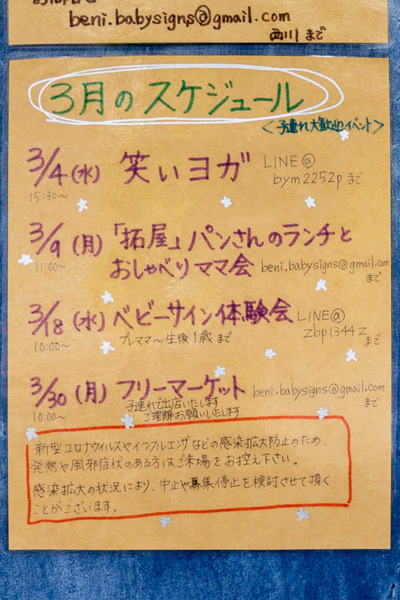 beni.babysigns@gmail.com
西川 まで
3月のスケジュール
<子連れ大歓迎イベント>
3/4(水) 笑いヨガ LINE@
15:30～ bym2252p まで
3/9(月) 「拓屋」パンさんのランチと
11:00～ おしゃべりママ会 beni.babysigns@gmail.com
まで
3/18(水) ベビーサイン体験会 LINE@
10:00～ プレママ～生後1歳まで zbp1344z
まで
3/30(月) フリーマーケット beni.babysigns@gmail.com
10:00～ 子連れで出店いたします まで
ご理解お願いいたします
新型コロナウイルスやインフルエンザなどの感染拡大防止のため、
発熱や風邪症状のある方はご来場をお控え下さい。
感染拡大の状況により、中止や募集停止を検討させて頂く
ことがございます。